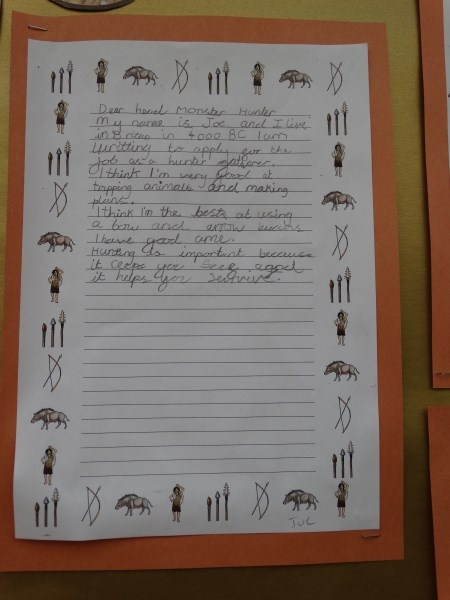 Dear head Monster Hunter
My name is Joe and I live
in Britan in 4000 BC I am
writting to apply for the
Job as a hunter gatherer.
I think I'm very good at
trapping animals and making
plans.
I think I'm the best at using
a bow and arrow because
I have good ame.
Hunting is important because
it ceeps you safe and
it helps you survive.